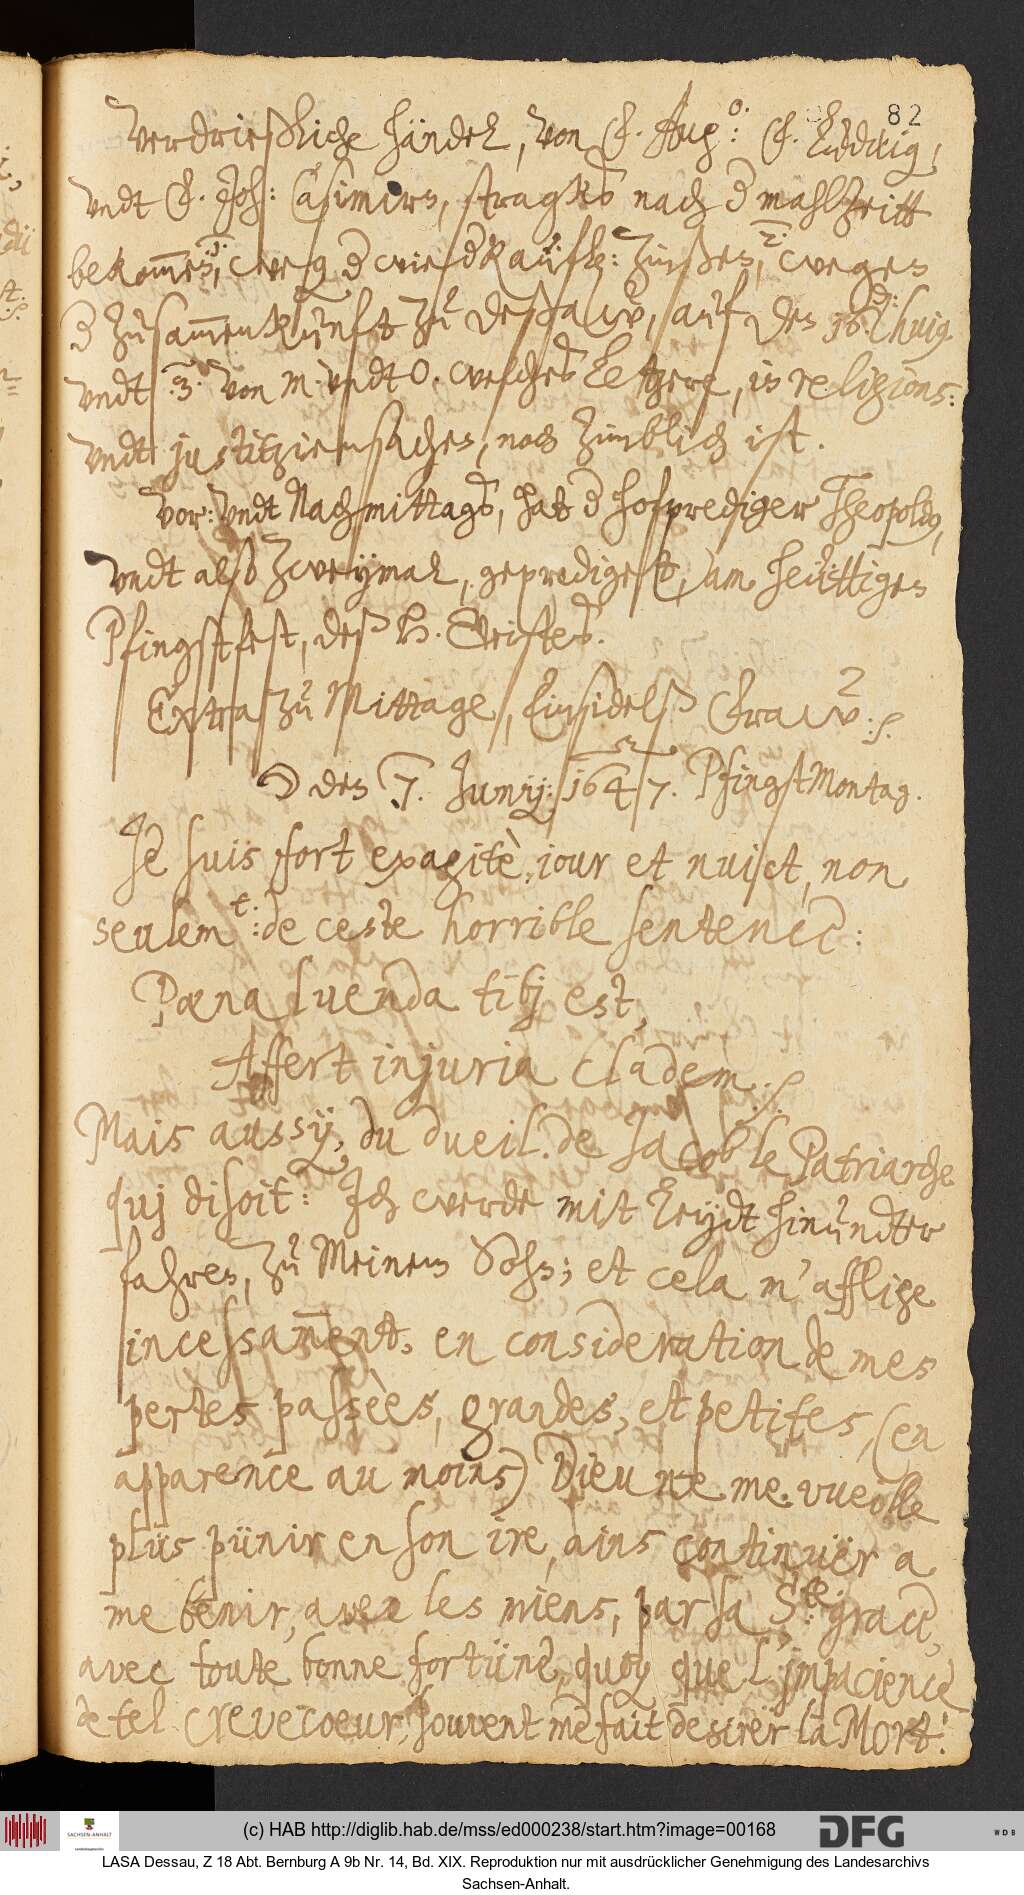 82
Verdrießliche händel, von F. Aug:o F. Ludwig,
undt F. Joh: Casimirn, stragks nach d mahlzeitt
bekom̄en, 1. weg d Kaufh: Zinßen, 2. wegen
d Zusam̄enkunfft zu Deßaw, auf den 16. huig
undt 3. von M. undt O. welches letztere, in religions:
undt justitziensachen, noch zimblich ist.
Vor: undt Nachmittags, hat d hofprediger Theopoldus,
undt also zweymal, geprediget, am heüttigen
Pfingstfest, deß H. Geistes.
Extra zu Mittage, Einsidelß Fraw. /.
☽ den 7. Junij: 1647. PfingstMontag.
Je suis fort exagitè, iour et nuict, non
seulem:t de ceste horrible sentence:
Pœna luenda tibj est,
Affert injuria cladem. /.
Mais aussy, du dueil de Jacob le Patriarche
quj disoit: Ich werde mit leydt hinundter
fahren, zu Meinem Sohn; et cela m'afflige
incessam̄ent, en consideration de mes
pertes passèes, grandes, et petites, (en
apparence au moins) Dieu ne me vueille
plüs pünir en son ire, ains continuër a
me benir, avec les miens, par sa S:te grace,
avec toute bonne fortüne, quoy que l'impacience
de tel crevecoeur, souvent me fait desirer la Mort!
(c) HAB http://diglib.hab.de/mss/ed000238/start.htm?image=00168
DFG
WDB
SACHSEN-ANHALT
LASA Dessau, Z 18 Abt. Bernburg A 9b Nr. 14, Bd. XIX. Reproduktion nur mit ausdrücklicher Genehmigung des Landesarchivs
Sachsen-Anhalt.